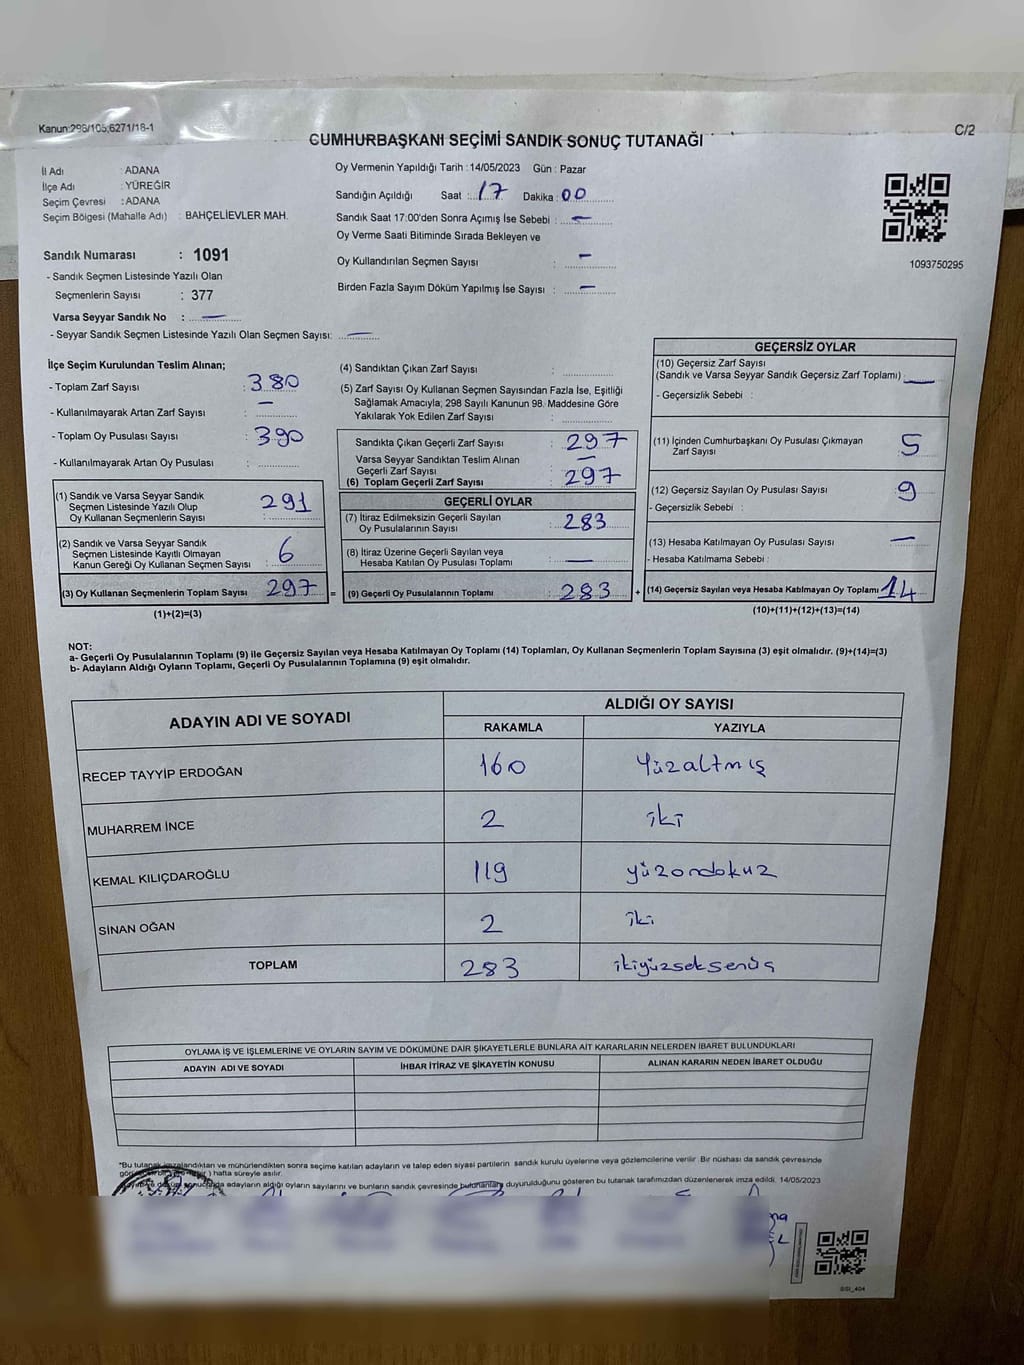 Kanun:298/105;6271/18-1
C/2
CUMHURBAŞKANI SEÇİMİ SANDIK SONUÇ TUTANAĞI
İl Adı : ADANA
İlçe Adı : YÜREĞİR
Seçim Çevresi : ADANA
Seçim Bölgesi (Mahalle Adı) : BAHÇELİEVLER MAH.
Oy Vermenin Yapıldığı Tarih : 14/05/2023 Gün : Pazar
Sandığın Açıldığı Saat : 17 Dakika : 00
Sandık Saat 17:00'den Sonra Açımış İse Sebebi : —
Oy Verme Saati Bitiminde Sırada Bekleyen ve
Oy Kullandırılan Seçmen Sayısı : —
Birden Fazla Sayım Döküm Yapılmış İse Sayısı : —
1093750295
Sandık Numarası : 1091
- Sandık Seçmen Listesinde Yazılı Olan
Seçmenlerin Sayısı : 377
Varsa Seyyar Sandık No : —
- Seyyar Sandık Seçmen Listesinde Yazılı Olan Seçmen Sayısı: —
İlçe Seçim Kurulundan Teslim Alınan;
- Toplam Zarf Sayısı : 380
- Kullanılmayarak Artan Zarf Sayısı : —
- Toplam Oy Pusulası Sayısı : 390
- Kullanılmayarak Artan Oy Pusulası :
(1) Sandık ve Varsa Seyyar Sandık
Seçmen Listesinde Yazılı Olup
Oy Kullanan Seçmenlerin Sayısı : 291
(2) Sandık ve Varsa Seyyar Sandık
Seçmen Listesinde Kayıtlı Olmayan
Kanun Gereği Oy Kullanan Seçmen Sayısı : 6
(3) Oy Kullanan Seçmenlerin Toplam Sayısı : 297 =
(1)+(2)=(3)
(4) Sandıktan Çıkan Zarf Sayısı :
(5) Zarf Sayısı Oy Kullanan Seçmen Sayısından Fazla İse, Eşitliği
Sağlamak Amacıyla; 298 Sayılı Kanunun 98. Maddesine Göre
Yakılarak Yok Edilen Zarf Sayısı :
Sandıkta Çıkan Geçerli Zarf Sayısı : 297
Varsa Seyyar Sandıktan Teslim Alınan
Geçerli Zarf Sayısı : —
(6) Toplam Geçerli Zarf Sayısı : 297
GEÇERLİ OYLAR
(7) İtiraz Edilmeksizin Geçerli Sayılan
Oy Pusulalarının Sayısı : 283
(8) İtiraz Üzerine Geçerli Sayılan veya
Hesaba Katılan Oy Pusulası Toplamı : —
(9) Geçerli Oy Pusulalarının Toplamı : 283 +
GEÇERSİZ OYLAR
(10) Geçersiz Zarf Sayısı
(Sandık ve Varsa Seyyar Sandık Geçersiz Zarf Toplamı) —
- Geçersizlik Sebebi :
(11) İçinden Cumhurbaşkanı Oy Pusulası Çıkmayan
Zarf Sayısı : 5
(12) Geçersiz Sayılan Oy Pusulası Sayısı : 9
- Geçersizlik Sebebi :
(13) Hesaba Katılmayan Oy Pusulası Sayısı : —
- Hesaba Katılmama Sebebi :
(14) Geçersiz Sayılan veya Hesaba Katılmayan Oy Toplamı : 14
(10)+(11)+(12)+(13)=(14)
NOT:
a- Geçerli Oy Pusulalarının Toplamı (9) ile Geçersiz Sayılan veya Hesaba Katılmayan Oy Toplamı (14) Toplamları, Oy Kullanan Seçmenlerin Toplam Sayısına (3) eşit olmalıdır. (9)+(14)=(3)
b- Adayların Aldığı Oyların Toplamı, Geçerli Oy Pusulalarının Toplamına (9) eşit olmalıdır.
ADAYIN ADI VE SOYADI ALDIĞI OY SAYISI
RAKAMLA YAZIYLA
RECEP TAYYİP ERDOĞAN 160 Yüzaltmış
MUHARREM İNCE 2 iki
KEMAL KILIÇDAROĞLU 119 yüzondokuz
SİNAN OĞAN 2 iki
TOPLAM 283 ikiyüzseksenüç
OYLAMA İŞ VE İŞLEMLERİNE VE OYLARIN SAYIM VE DÖKÜMÜNE DAİR ŞİKAYETLERLE BUNLARA AİT KARARLARIN NELERDEN İBARET BULUNDUKLARI
ADAYIN ADI VE SOYADI İHBAR İTİRAZ VE ŞİKAYETİN KONUSU ALINAN KARARIN NEDEN İBARET OLDUĞU
*Bu tutanak imzalandıktan ve mühürlendikten sonra seçime katılan adayların ve talep eden siyasi partilerin sandık kurulu üyelerine veya gözlemcilerine verilir. Bir nüshası da sandık çevresinde
) hafta süreyle asılır.
adayların aldığı oyların sayılarını ve bunların sandık çevresinde bulunanlara duyurulduğunu gösteren bu tutanak tarafımızdan düzenlenerek imza edildi. 14/05/2023
SSI_404